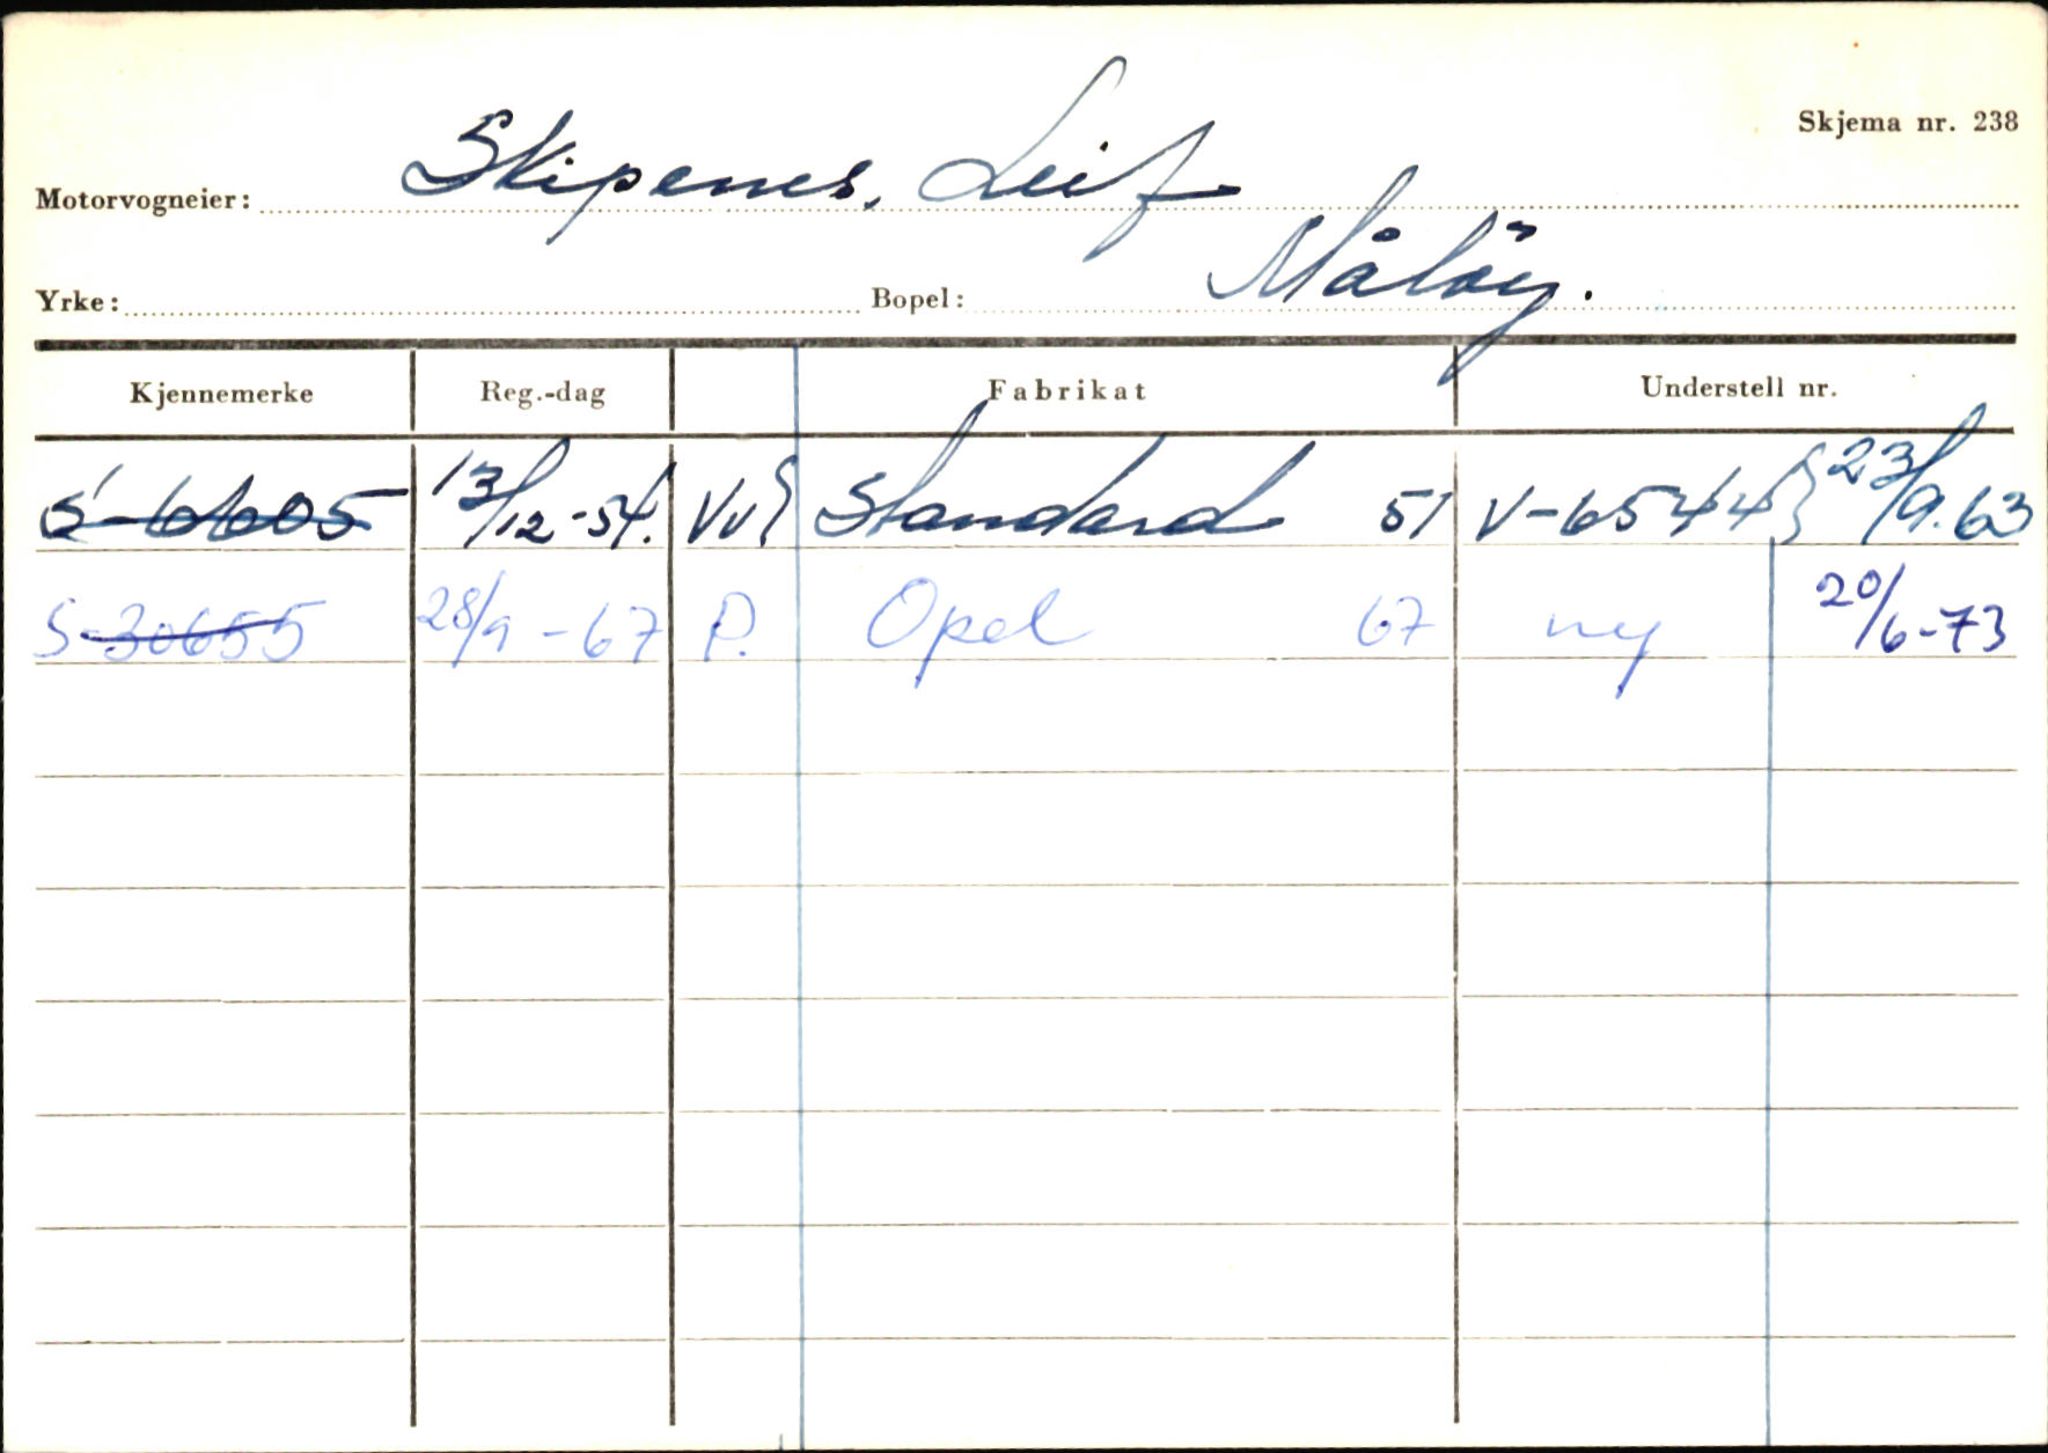 Skjema nr. 238
Motorvogneier: Skipenes, Leif
Yrke: Bopel: Måløy.
Kjennemerke Reg.-dag Fabrikat Understell nr.
S-6605 13/12-54. Standard 51 V-6544 23/9.63
S-30655 28/9-67 P. Opel 67 ny 20/6-73